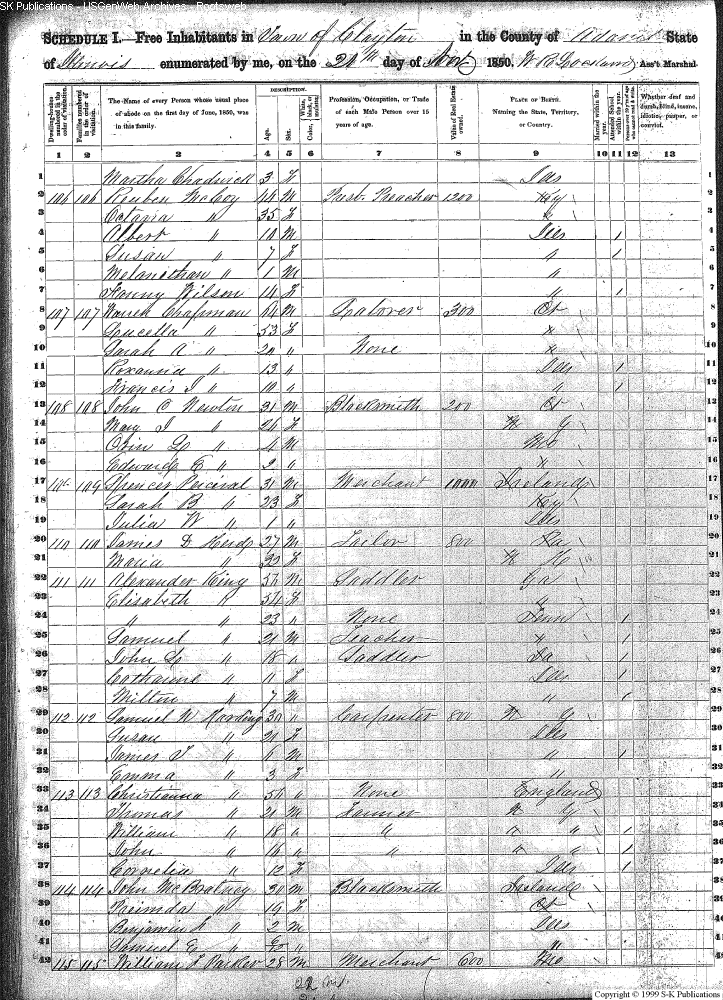 SK Publications - USGenWeb Archives - Rootsweb
SCHEDULE I. Free Inhabitants in Town of Clayton in the County of Adams State
of Illinois enumerated by me, on the day of Nov 1850. Ass't Marshal
DESCRIPTION.
Dwelling-houses numbered in the order of visitation.
Families numbered in the order of visitation.
The Name of every Person whose usual place of abode on the first day of June, 1850, was in this family.
Age.
Sex.
White, black, or mulatto.
Color,
Profession, Occupation, or Trade of each Male Person over 15 years of age.
Value of Real Estate owned.
PLACE OF BIRTH. Naming the State, Territory, or Country.
Married within the year.
Attended School within the year.
Whether deaf and dumb, blind, insane, idiotic, pauper, or convict.
1 2 3 4 5 6 7 8 9 10 11 12 13
1 Martha Chadwick 3 f Ills
2 106 106 Reuben McCoy 44 M Presb. Preacher 1200 Ky
3 " 35 f "
4 Albert " 10 M Ills 1
5 Susan " 7 f " 1
6 " 1 M "
7 Fanny Wilson 14 f " 1
8 107 107 Chapman 64 M 300 Ct
9 Lucella " 53 f "
10 Sarah A " 20 " None "
11 Roxanna " 13 " Ills 1
12 Francis J " 10 " " 1
13 108 108 John C Newton 31 M Blacksmith 200 Ct
14 Mary J " 26 f N Y
15 Orin L " 4 M Mo
16 Edward E " 2 " "
17 109 Percival 31 M Merchant 1000 Ireland
18 Sarah B " 23 f Key
19 Julia W " 1 " Ills
20 110 110 James D 27 M Tailor 800
21 Maria " 32 f
22 111 111 Alexander King 56 M Saddler Ga
23 Elisabeth " 54 f "
24 " " 23 " None Tenn 1
25 Samuel " 21 M Teacher " 1
26 John L " 18 " Saddler 1
27 Catharine " 11 f Ills 1
28 Milton " 7 M " 1
29 112 112 Samuel W Harding 30 " Carpenter 800 N Y
30 Susan " 21 f Ills
31 James T " 6 M " 1
32 Emma " 3 f "
33 113 113 Christianna " 56 " None England
34 Thomas " 21 M Farmer N Y
35 William " 18 " " " " 1
36 John " 16 " " " " 1
37 Cornelia " 12 f Ills 1
38 114 114 John McBratney 30 M Blacksmith Ireland
39 " 19 f Ct
40 Benjamin L " 2 M Ills
41 Samuel E " "
42 115 115 William L Parker 28 M Merchant 600
Copyright © 1999 S-K Publications